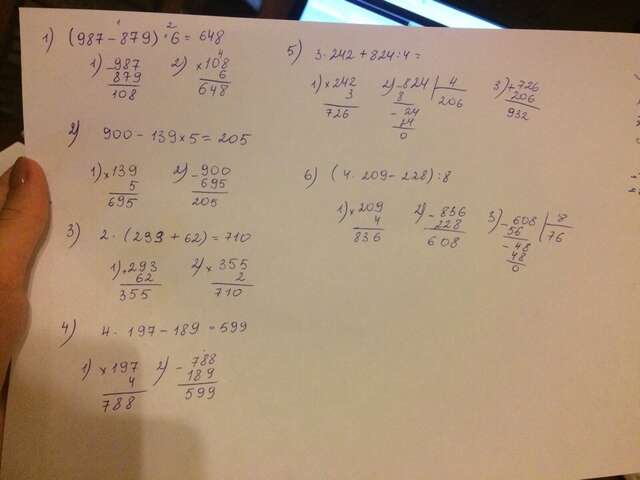 1) (987 - 879) · 6 = 648
1) - 987
879
108
2) × 108
6
648
2) 900 - 139 × 5 = 205
1) × 139
5
695
2) - 900
695
205
3) 2 · (293 + 62) = 710
1) + 293
62
355
2) × 355
2
710
4) 4 · 197 - 189 = 599
1) × 197
4
788
2) - 788
189
599
5) 3 · 242 + 824 : 4 =
1) × 242
3
726
2) - 824 | 4
8 206
- 24
24
0
3) + 726
206
932
6) (4 · 209 - 228) : 8
1) × 209
4
836
2) - 836
228
608
3) - 608 | 8
56 76
- 48
48
0